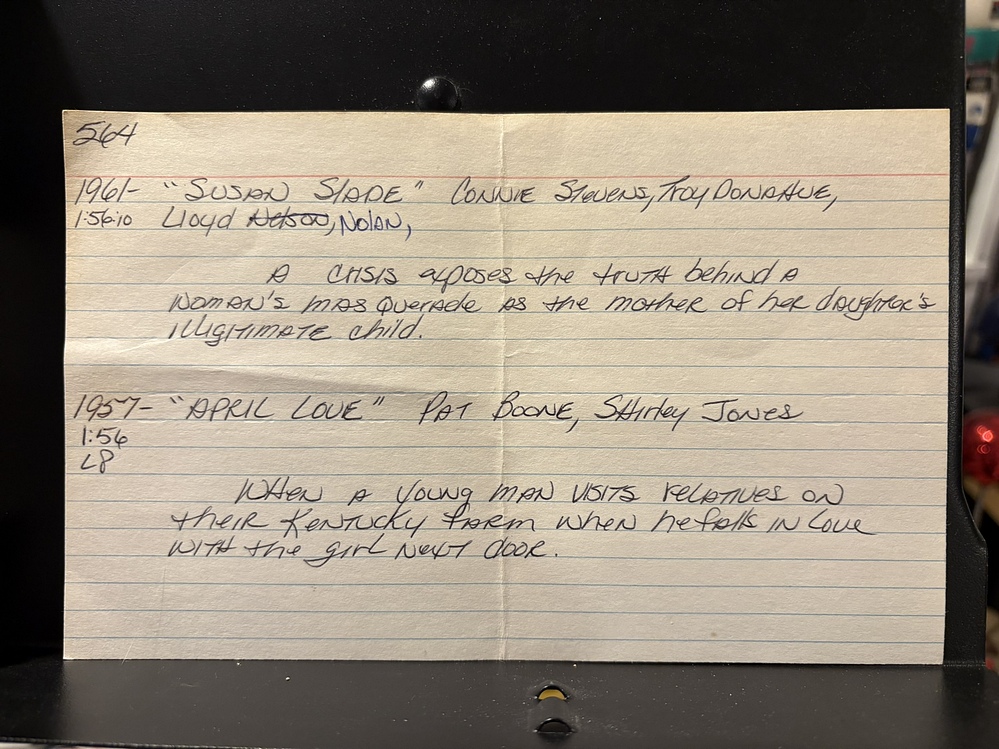 564
1961- "SUSAN SlADE" CONNIE StEVENS, TROY DONAHUE,
1:56:10 Lloyd Nelson, NOlAN,
A CRISIS exposes the truth behind A
WOMAN'S MASQUERADE AS the mother of her daughter's
IllIGITIMATE child.
1957- "APRIL LOVE" PAT BOONE, SHIRley JONES
1:56
L8
WHEN A YOUNG MAN VISITS RELATIVES ON
their KENTUCKY FARM WHEN he falls IN LOVE
WITH the girl NEXT dOOR.